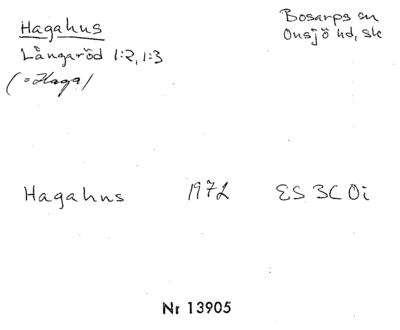 Hagahus
Långaröd 1:2, 1:3
(=Haga)
Bosarps sn
Onsjö hd, sk
Hagahus 1972 ES 3C 0i
Nr 13905